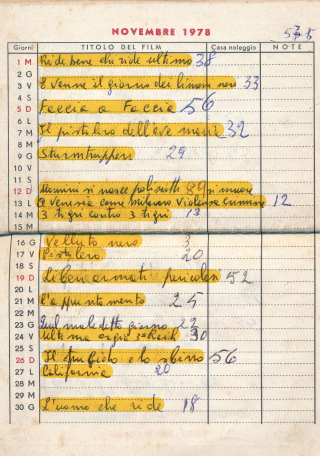 NOVEMBRE 1978
575
Giorni TITOLO DEL FILM Casa noleggio NOTE
1 M Ride bene chi ride ultimo 38
2 G
3 V E venne il giorno dei limoni neri 33
4 S
5 D Faccia a Faccia 56
6 L
7 M Il pistolero dell'ave maria 32
8 M
9 G Sturmtruppen 29
10 V
11 S
12 D Uomini si nasce poliziotti 89 si muore
13 L A Venezia come Milano Violenza 12
14 M 3 tigri contro 3 tigri 13
15 M
16 G Velluto nero 3
17 V Pistolero 20
18 S
19 D Liberi armati pericolosi 52
20 L
21 M L'appuntamento 25
22 M
23 G Quel maledetto giorno 22
24 V Ultima orgia 3º Reich 30
25 S
26 D Il trucido e lo sbirro 56
27 L California 20
28 M
29 M
30 G L'uomo che ride 18